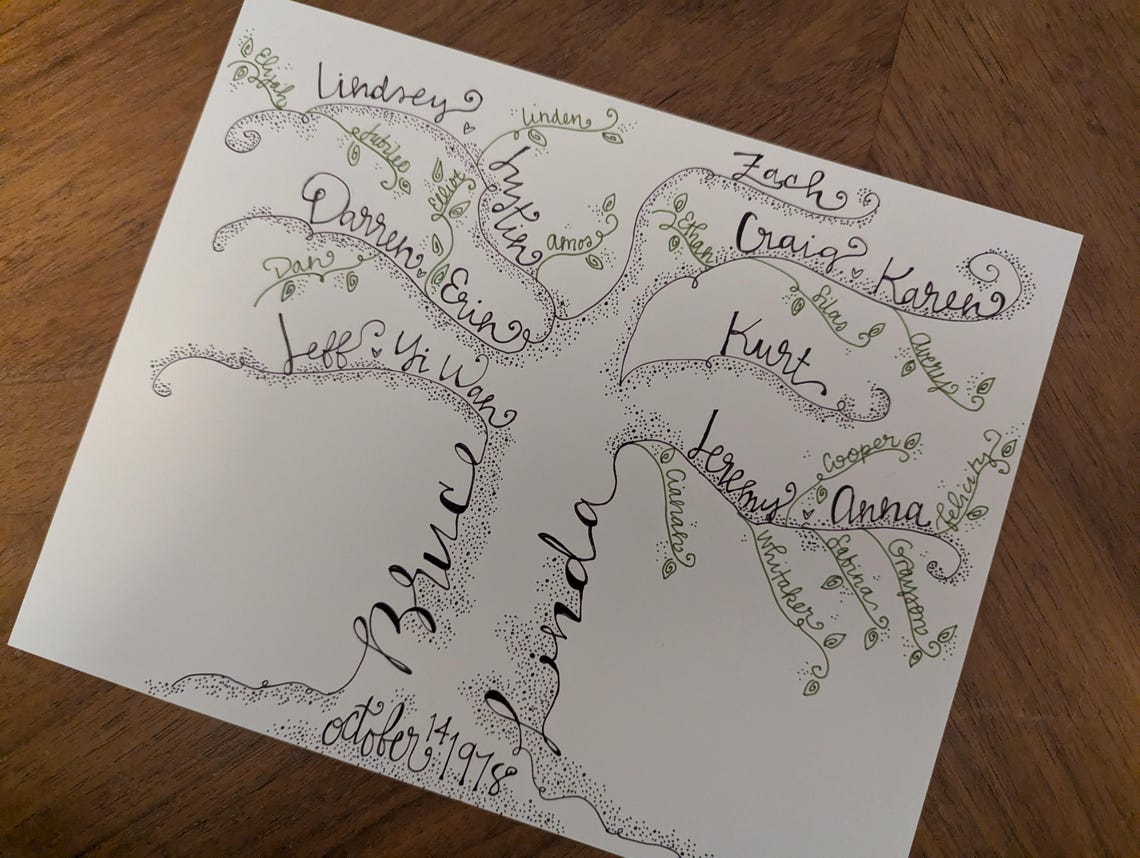 Elijah
Lindsey ♡ Justin
Jubilee
Linden
Amos
Eliot
Darren ♡ Erin
Dan
Jeff ♡ Yi Wan
Zach
Ethan
Craig ♡ Karen
Silas
Avery
Kurt
Jeremy ♡ Anna
Cooper
Felicity
Whitaker
Sabina
Grayson
Bruce
Linda
October 14, 1978